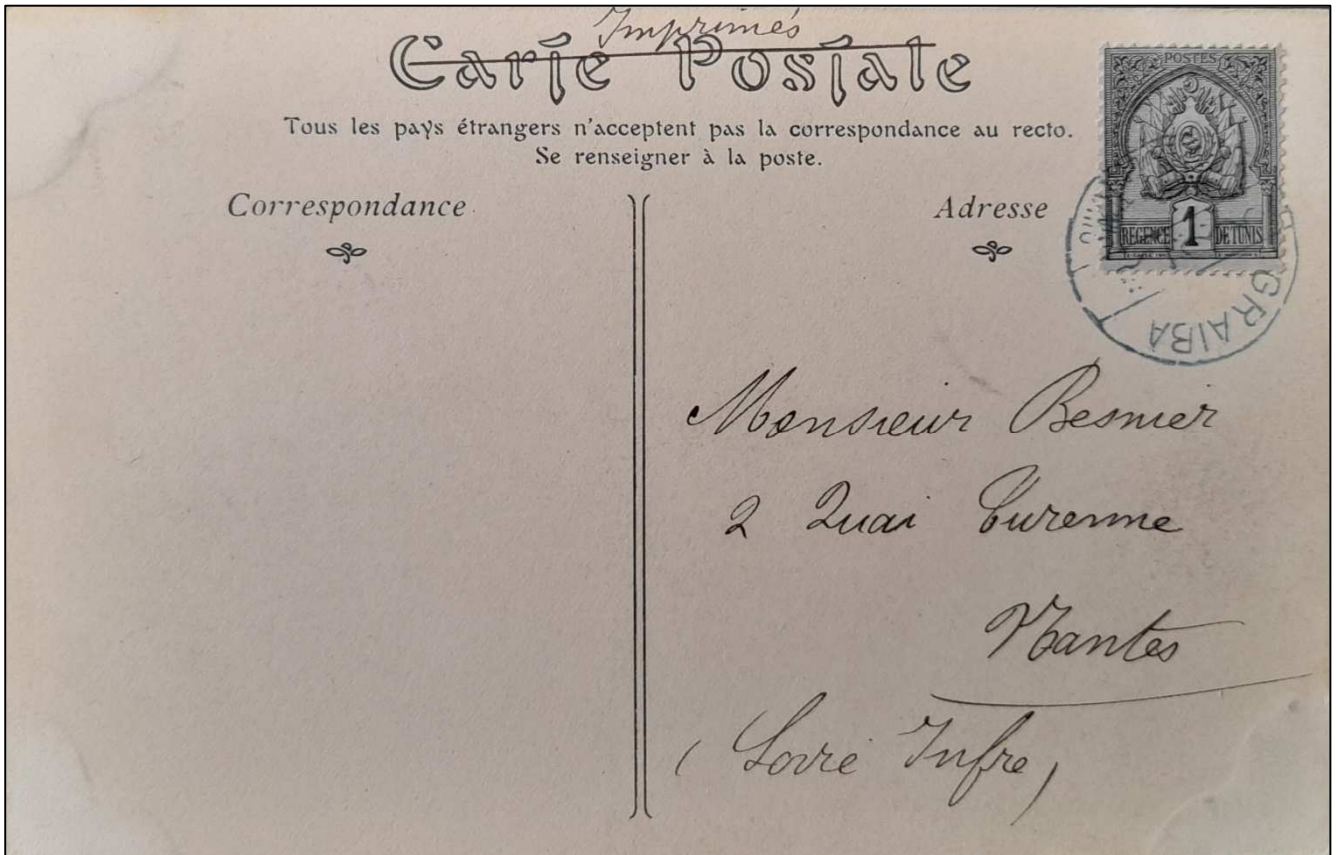 Imprimés
Carte Postale
Tous les pays étrangers n'acceptent pas la correspondance au recto.
Se renseigner à la poste.
Correspondance
Adresse
POSTES
REGENCE 1 DE TUNIS
GRAIBA
Monsieur Besnier
2 Quai Turenne
Nantes
(Loire Infre)